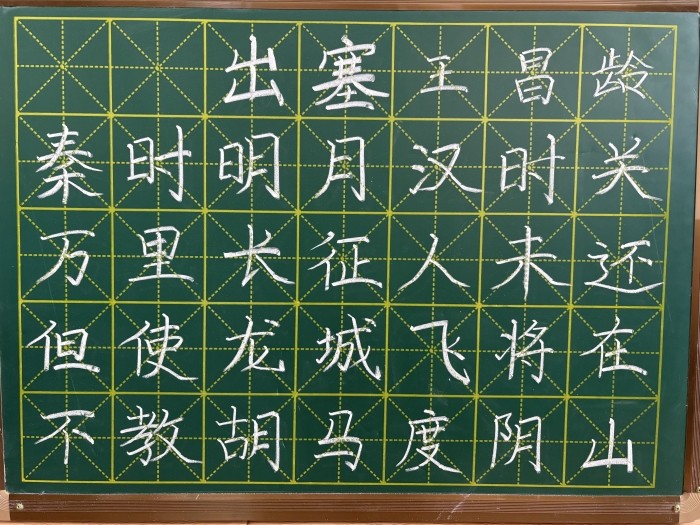 出塞 王昌龄
秦时明月汉时关
万里长征人未还
但使龙城飞将在
不教胡马度阴山